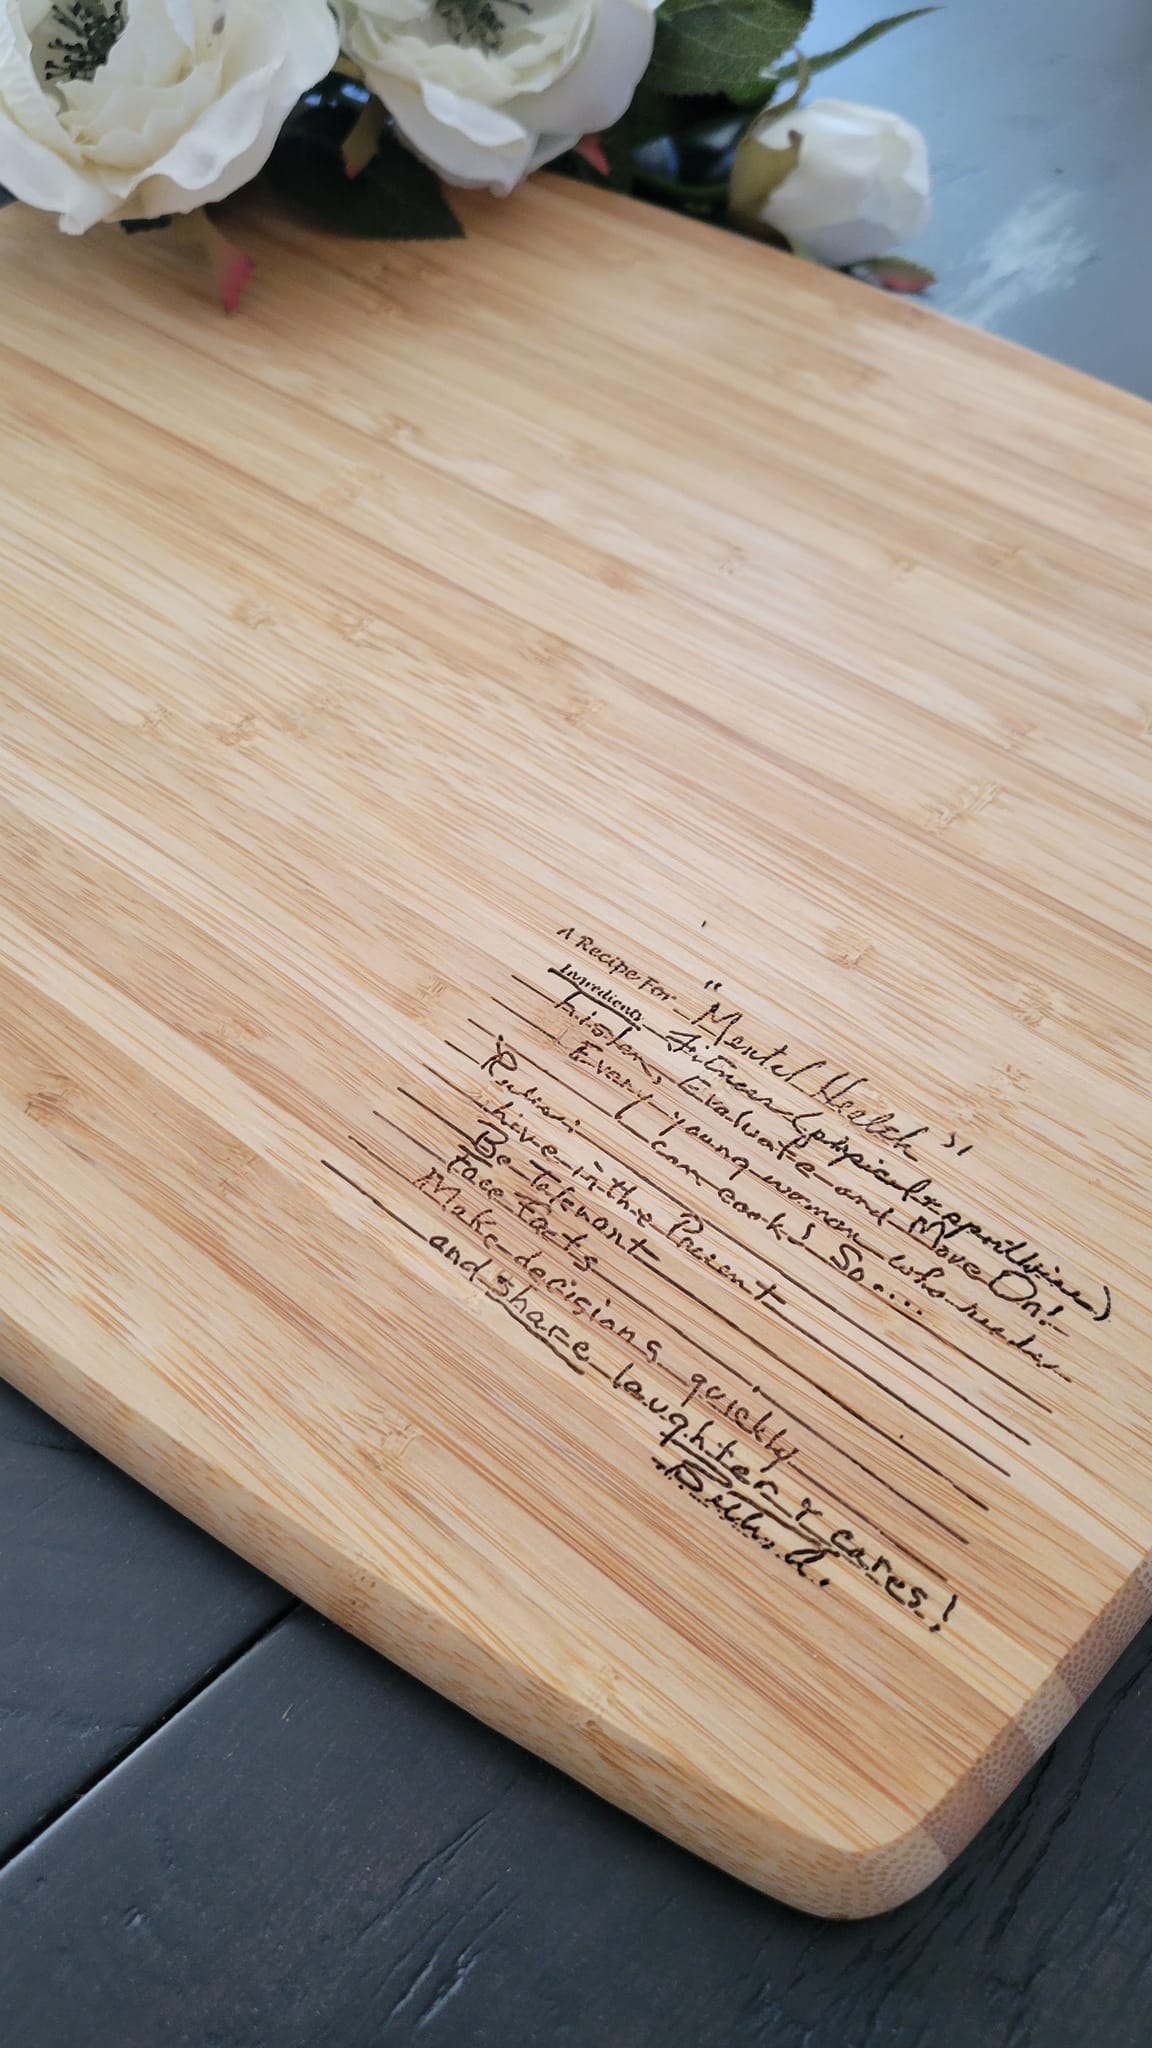 A Recipe For "Mental Health"!
Ingredients Fitness (physical +
Listen, Evaluate and Move On!
(Every young woman who reads
can cook! So....
Live in the Present
Be Tolerant
Face Facts
Make decisions quickly
and share laughter & cares!